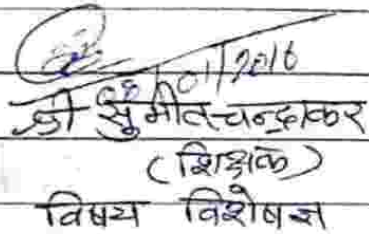 /01/2016
श्री सुमीत चन्द्राकर
(शिक्षक)
विषय विशेषज्ञ